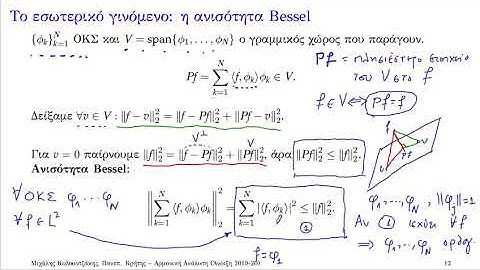 Το εσωτερικό γινόμενο: η ανισότητα Bessel
{φₖ}ᴺₖ₌₁ ΟΚΣ και V = span{φ₁, . . . , φ_N} ο γραμμικός χώρος που παράγουν.
Pf = πλησιέστερο στοιχείο του V στο f
Pf = ∑ᴺₖ₌₁ ⟨f, φₖ⟩φₖ ∈ V.
f ∈ V ⟺ Pf = f
Δείξαμε ∀v ∈ V : ‖f − v‖₂² = ‖f − Pf‖₂² + ‖Pf − v‖₂².
V^⊥
f
Pf
v
V
Για v = 0 παίρνουμε ‖f‖₂² = ‖f − Pf‖₂² + ‖Pf‖₂², άρα ‖Pf‖₂² ≤ ‖f‖₂².
Ανισότητα Bessel:
∀ ΟΚΣ φ₁ ... φ_N
∀f ∈ L²
‖∑ᴺₖ₌₁ ⟨f, φₖ⟩φₖ‖₂² = ∑ᴺₖ₌₁ |⟨f, φₖ⟩|² ≤ ‖f‖₂².
①
f = φ₁
φ₁, ..., φ_N, ‖φⱼ‖=1
Αν ① ισχύει ∀f
⇒ φ₁, ..., φ_N ορθογ.
Μιχάλης Κολουντζάκης, Πανεπ. Κρήτης – Αρμονική Ανάλυση (Άνοιξη 2019-20)
12